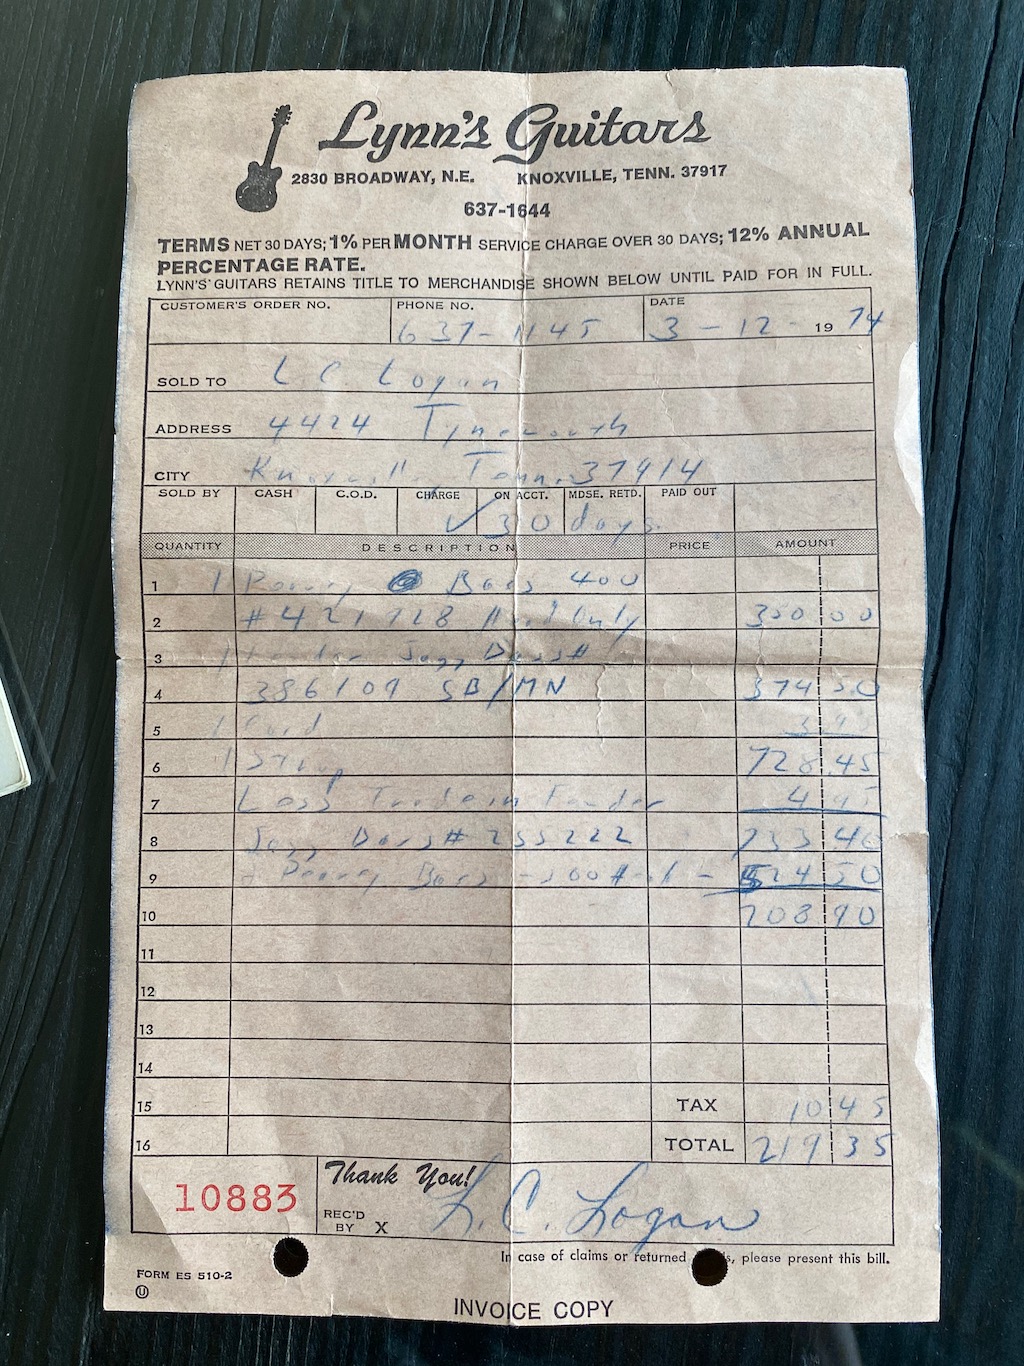 Lynn's Guitars
2830 BROADWAY, N.E. KNOXVILLE, TENN. 37917
637-1644
TERMS NET 30 DAYS; 1% PER MONTH SERVICE CHARGE OVER 30 DAYS; 12% ANNUAL
PERCENTAGE RATE.
LYNN'S' GUITARS RETAINS TITLE TO MERCHANDISE SHOWN BELOW UNTIL PAID FOR IN FULL.
CUSTOMER'S ORDER NO. PHONE NO. DATE
637-1145 3-12- 1974
SOLD TO L C Logan
ADDRESS 4424
CITY Knoxville, Tenn. 37914
SOLD BY CASH C.O.D. CHARGE ON ACCT. MDSE. RETD. PAID OUT
✓ 30 days
QUANTITY DESCRIPTION PRICE AMOUNT
1 1 Peavey Bass 400
2 #421928 Head Only 350 00
3 1 Fender Jazz Bass #
4 386109 SB/MN 374 50
5 1 Cord 3 95
6 1 Strap 728.45
7 Less Trade in Fender 4 95
8 Jazz Bass # 255222 733 40
9 Peavey Bass - 524 50
10 208 90
11
12
13
14
15 TAX 10 45
16 TOTAL 219 35
10883
Thank You!
REC'D BY X L. C. Logan
In case of claims or returned , please present this bill.
FORM ES 510-2
INVOICE COPY